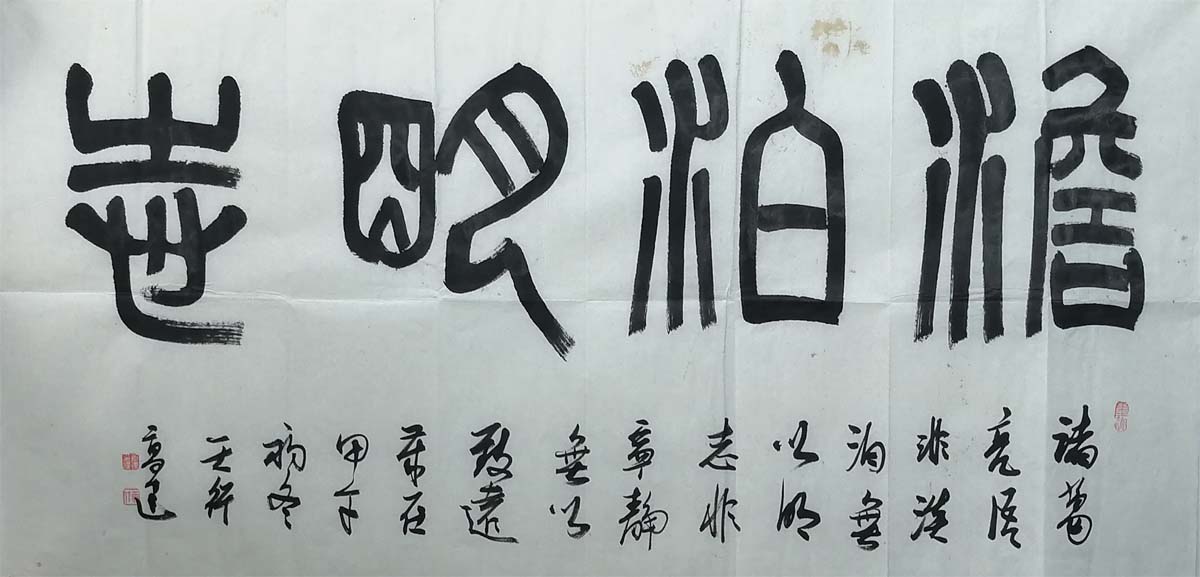 澹泊朙志
諸葛
亮語
非淡
泊無
以明
志非
寧靜
無以
致遠
歲在
甲午
初冬
軒
高建